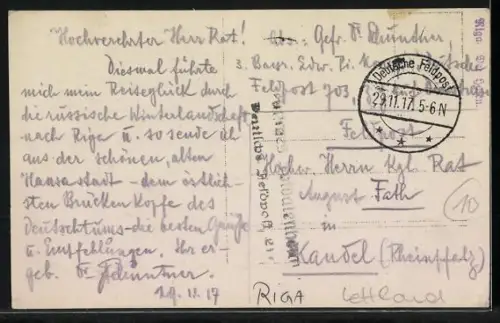 Hochverehrter Herr Rat!
Diesmal führte
mich mein Reiseglück durch
die russische Winterlandschaft
nach Riga u. so sende ich
aus der schönen, alten
Hansastadt - dem östlich-
sten Brücken Kopfe des
Deutschtums - die besten Grüße
u. Empfehlungen. Ihr er-
geb.
19.11.17
Gefr.
3. Bayr. Ldw.
Feldpost 703
Deutsche Feldpost
29.11.17. 5-6 N
Feldpost
Hochw. Herrn Kgl. Rat
August Fath
in
Kandel (Rheinpfalz)
10
RIGA
Lettland
Riga